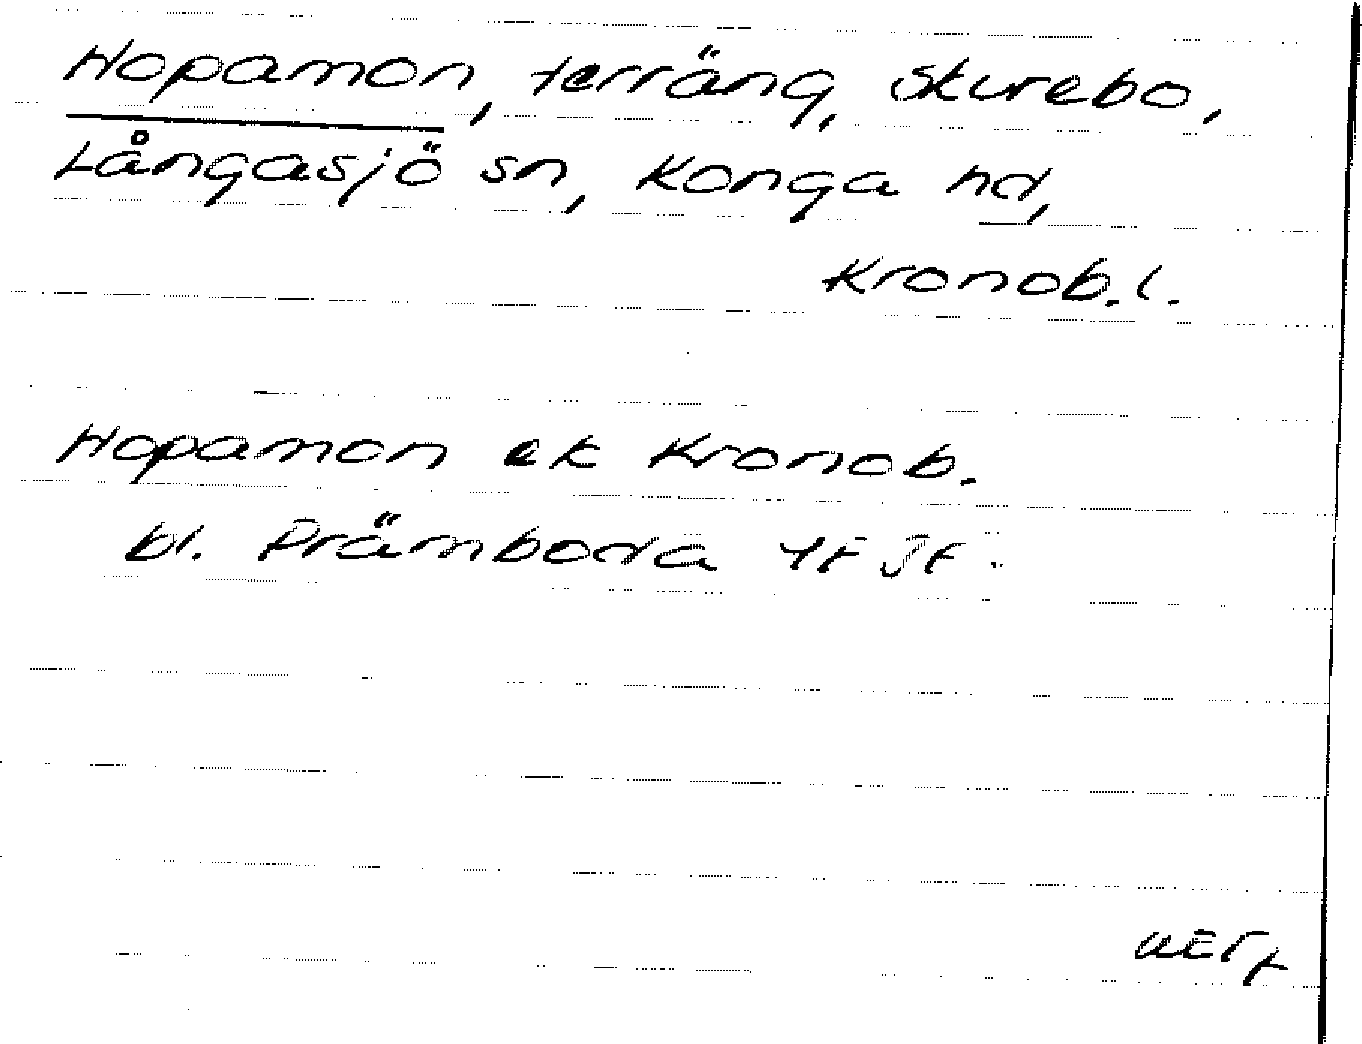 Hopamon, terräng, Skurebo,
Långasjö sn, Konga hd,
Kronob. l.
Hopamon ek Kronob.
bl. Prämboda 4F